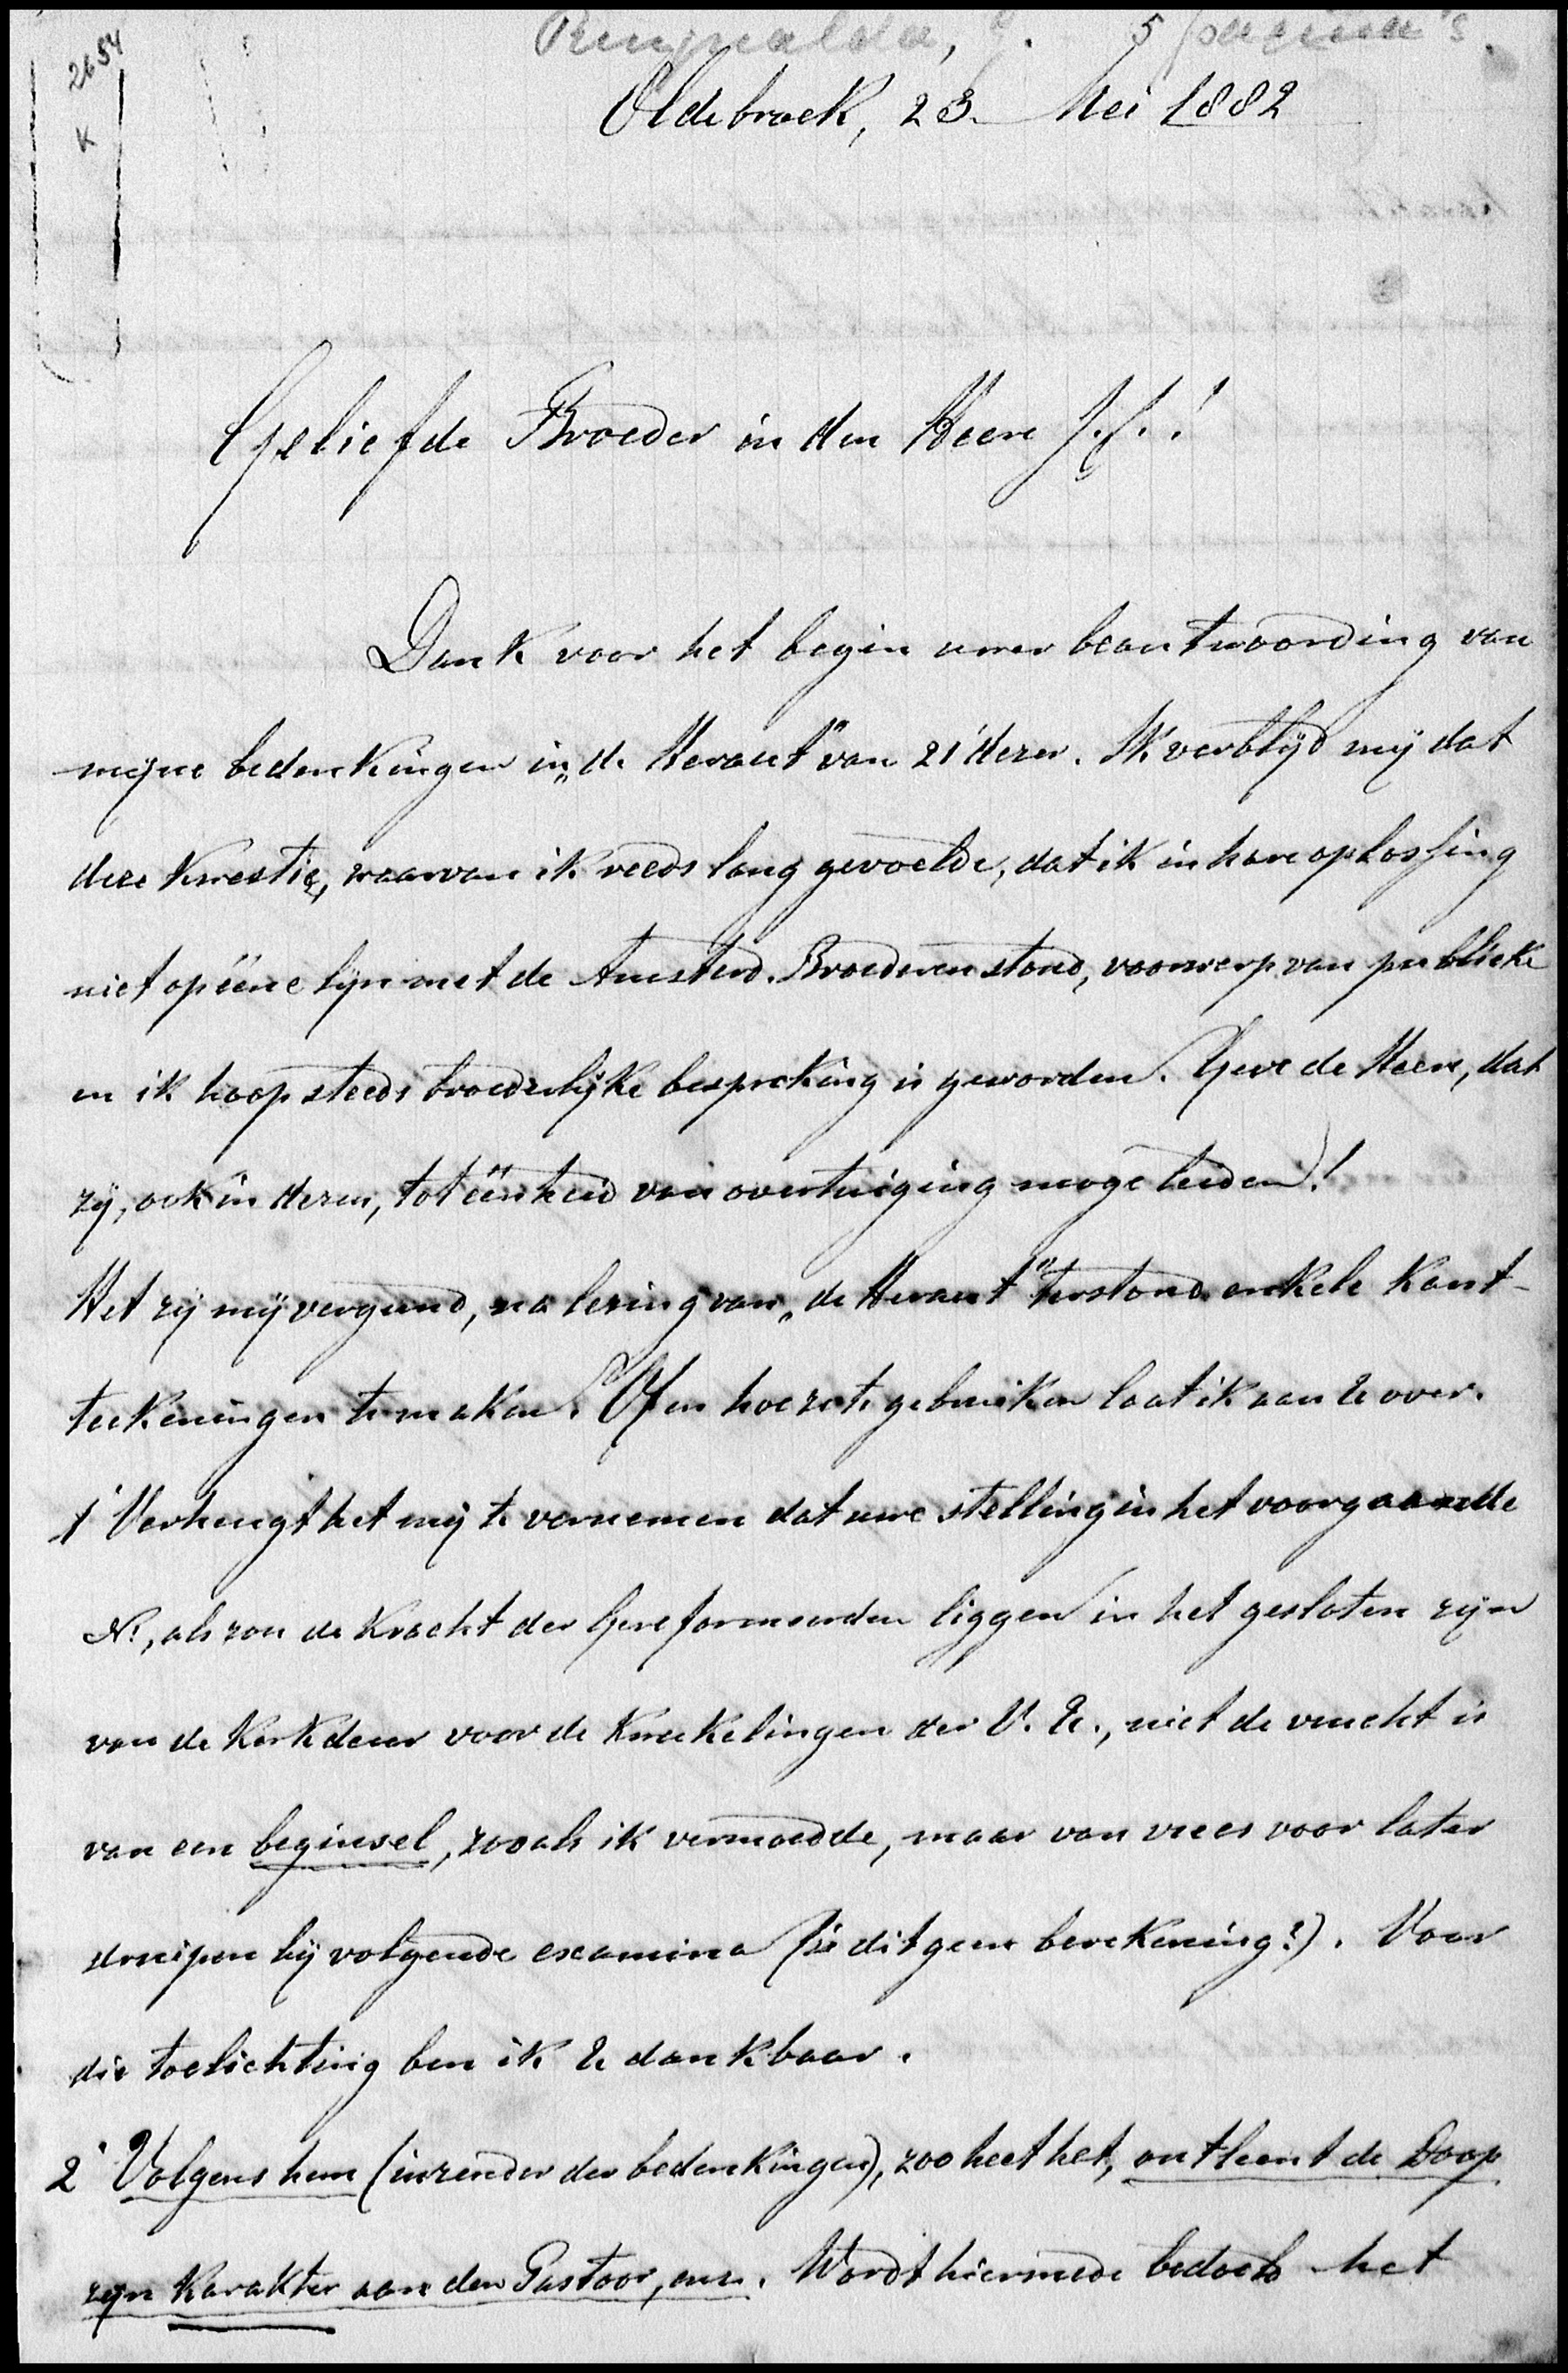 2654
K
5 pagina's.
Oldebroek, 23. Mei 1882
Geliefde Broeder in den Heere J.C.!
Dank voor het begin uwer beantwoording van
mijne bedenkingen in „de Heraut" van 21 dezer. Ik verblijd mij dat
deze kwestie, waarvan ik reeds lang gevoelde, dat ik in hare oplossing
niet op ééne lijn met de Amsterd. Broederen stond, voorwerp van publieke
en ik hoop steeds broederlijke bespreking is geworden. Geve de Heere, dat
zij, ook in dezen, tot éénheid van overtuiging moge leiden!
Het zij mij vergund, na lezing van „de Heraut" terstond enkele kant-
teekeningen te maken. Of en hoe ze te gebruiken laat ik aan U over.
1° Verheugt het mij te vernemen dat uwe stelling in het voorgaande
N°., als zou de kracht der Gereformeerden liggen in het gesloten zijn
van de kerkdeur voor de kweekelingen der V. U., niet de vrucht is
van een beginsel, zooals ik vermoedde, maar van vrees voor later
druipen bij volgende examina (is dit geen berekening?). Voor
die toelichting ben ik U dankbaar.
2° Volgens hem (inzender der bedenkingen), zoo heet het, ontleent de Doop
zijn karakter aan den Pastoor, enz. Wordt hiermede bedoeld het